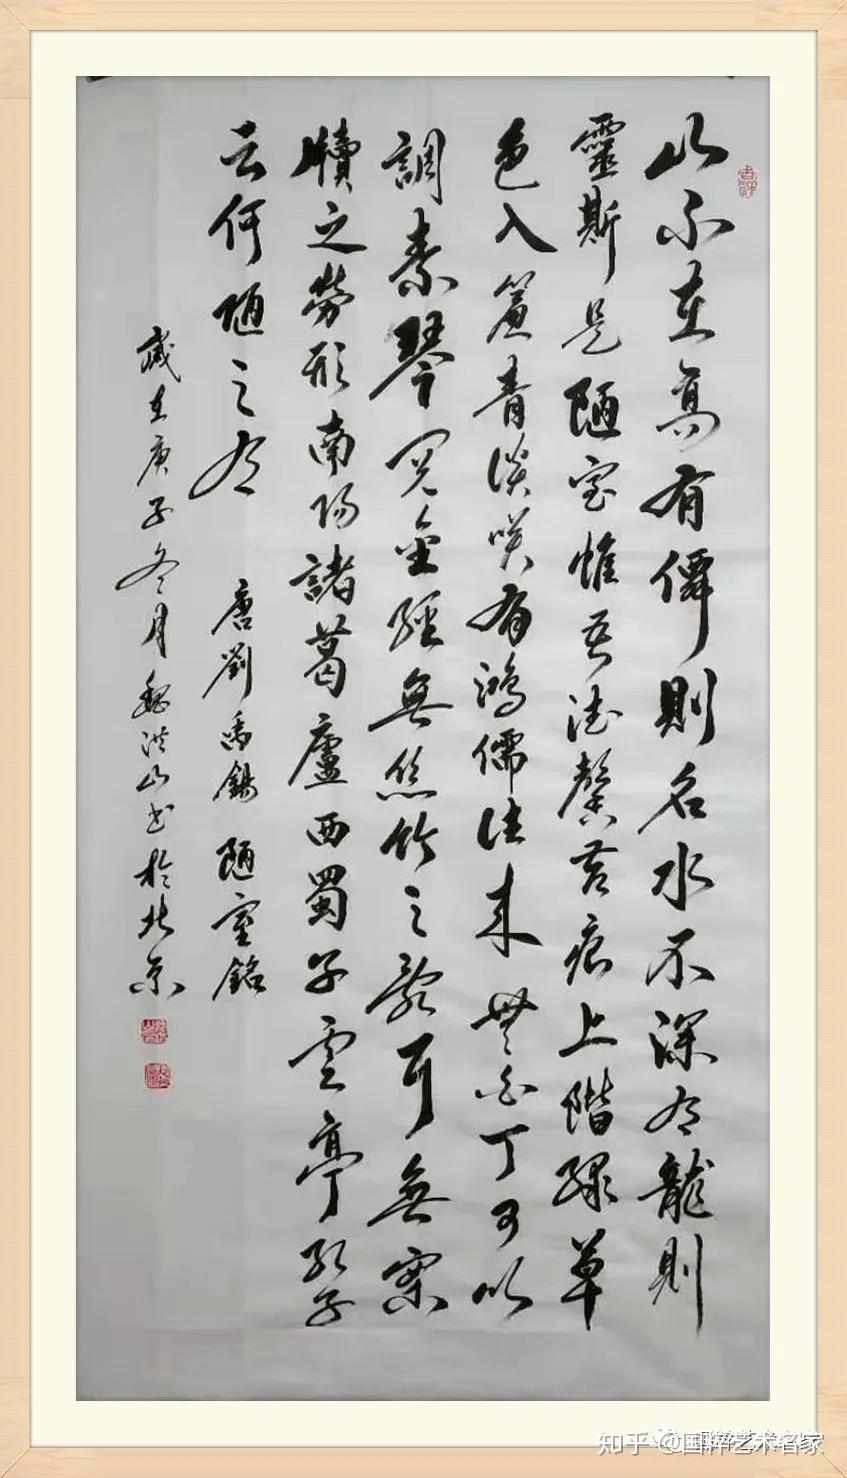 山不在高有僊則名水不深有龍則
靈斯是陋室惟吾德馨苔痕上階緑草
色入簾青談咲有鴻儒往来無白丁可以
調素琴閱金經無絲竹之亂耳無案
牘之勞形南陽諸葛廬西蜀子雲亭孔子
云何陋之有 唐劉禹錫 陋室銘
歲在庚子冬月魏洪山書於北京
知乎 @国粹艺术名家